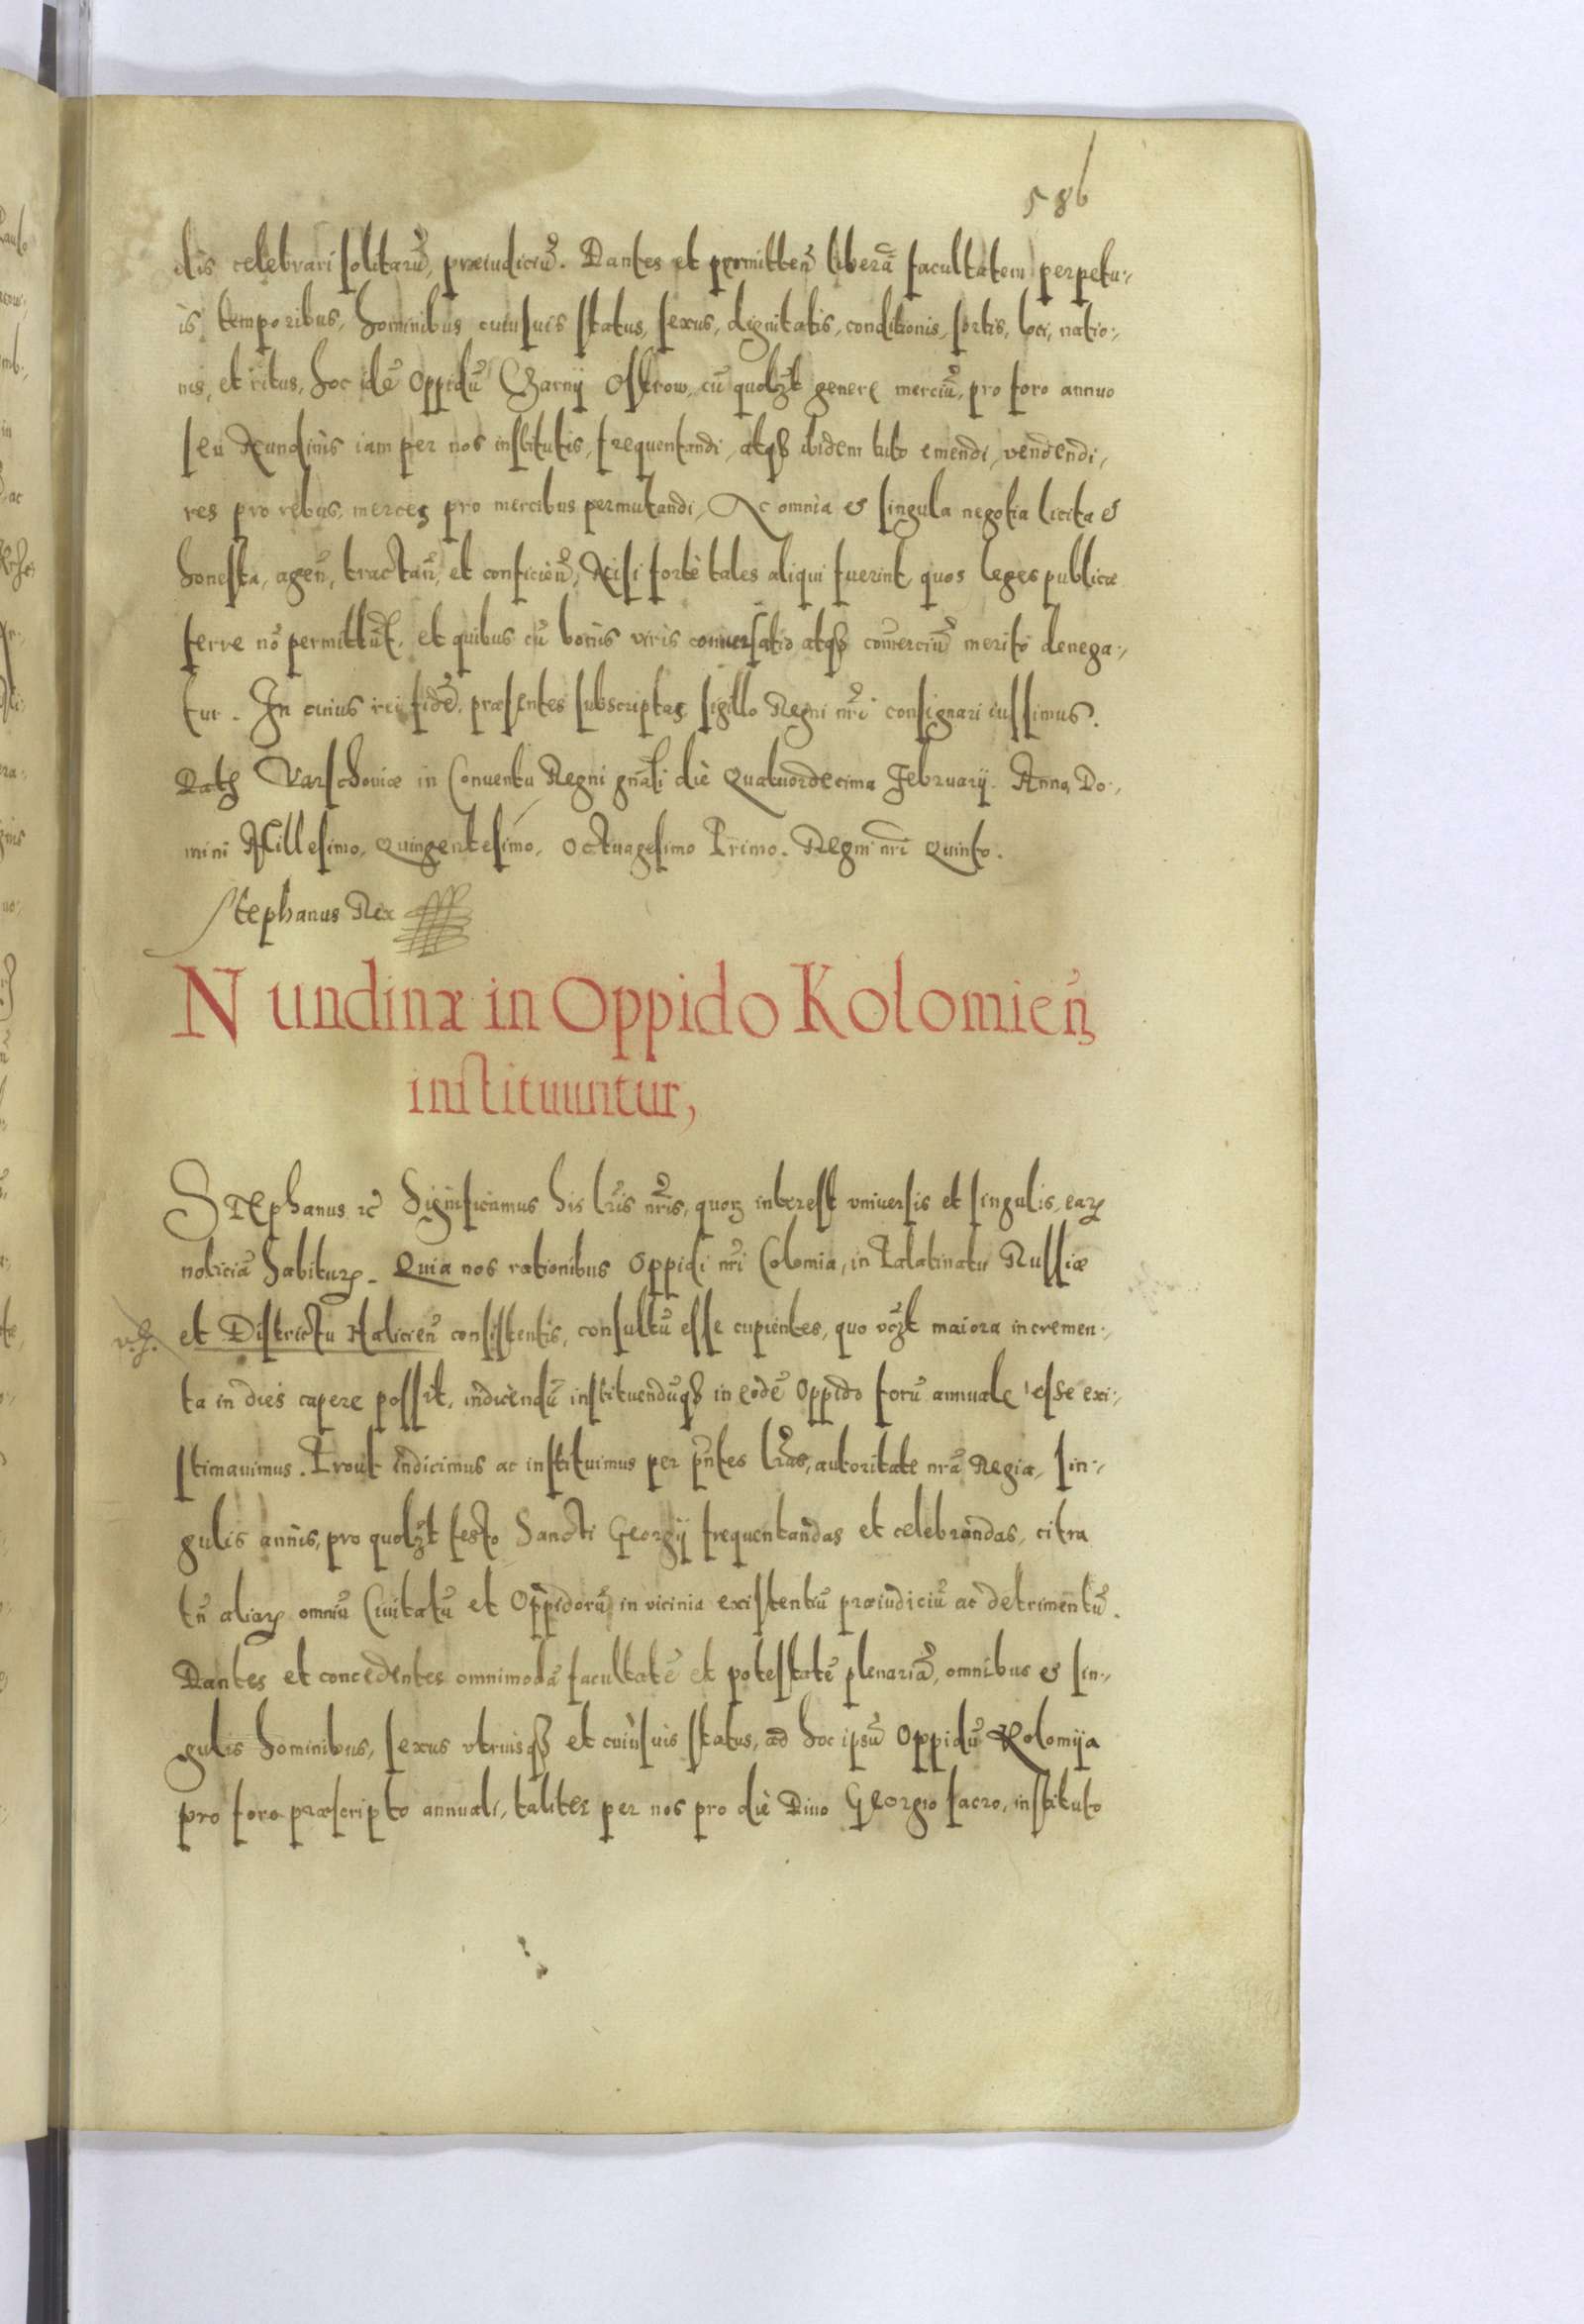 586
dis celebrari solitarũ, præiudiciũ. Dantes et permitteñ liberã facultatem perpetu:,
is temporibus, hominibus cuiusuis status, sexus, dignitatis, conditionis, sortis, loci, natio:,
nis, et ritus, hoc idẽ Oppidũ Czarnij Ostrow, cũ quolẓt genere merciũ, pro foro annuo
seu Nundinis iam per nos institutis, frequentandi, atqȝ ibidem tuto emendi, vendendi,
res pro rebus, merces pro mercibus permutandi, Ac omnia & singula negotia licita &
honesta, ageñ, tractañ, et conficieñ, Nisi fortè tales aliqui fuerint, quos leges publicæ
ferre nõ permittũt, et quibus cũ bonis viris conuersatio atqȝ comerciũ merito denega:,
tur. In cuius rei fidẽ, præsentes subscriptas, sigillo Regni nr̃i consignari iussimus.
Datȝ Varschouiæ in Conuentu Regni gñali die Quatuordecima Februarij. Anno Do:,
mini Millesimo, Quingentesimo, Octuagesimo Primo. Regni nr̃i Quinto.
Stephanus Rex
Nundinæ in Oppido Kolomieñ
instituuntur,
Stephanus ꝛc̃ Significamus his lr̃is nr̃is, quoꝝ interest vniuersis et singulis, eaꝝ
noticiã habituꝝ. Quia nos rationibus Oppidi nr̃i Colomia, in Palatinatu Russiæ
et Districtu Halicieñ consistentis, consultũ esse cupientes, quo vcȝt maiora incremen:,
ta in dies capere possit, indicendũ instituendũqȝ in eodẽ Oppido forũ annuale esse exi:,
stimauimus. Prout indicimus ac instituimus per pñtes lr̃as, autoritate nr̃a Regia, sin:,
gulis annis, pro quolȝt festo Sancti Georgij frequentandas et celebrandas, citra
tñ aliaꝝ omniũ Ciuitatũ et Oppidorũ in vicinia existentiũ præiudiciũ ac detrimentũ.
Dantes et concedentes omnimodã facultatẽ et potestatẽ plenariã, omnibus & sin:,
gulis hominibus, sexus vtriusqȝ et cuiusuis status, ad hoc ipsũ Oppidũ Kolomija
pro foro præscripto annuali, taliter per nos pro die Diuo Georgio sacro, instituto